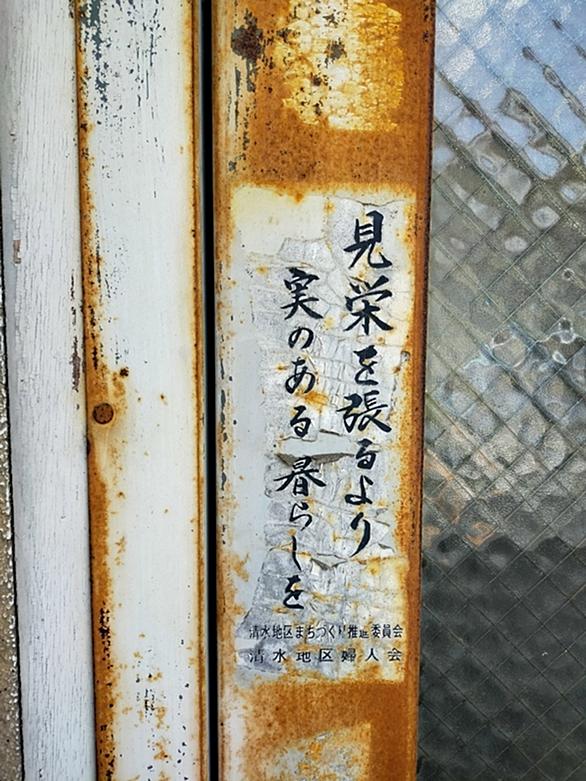 見栄を張るより
実のある暮らしを
清水地区まちづくり推進委員会
清水地区婦人会